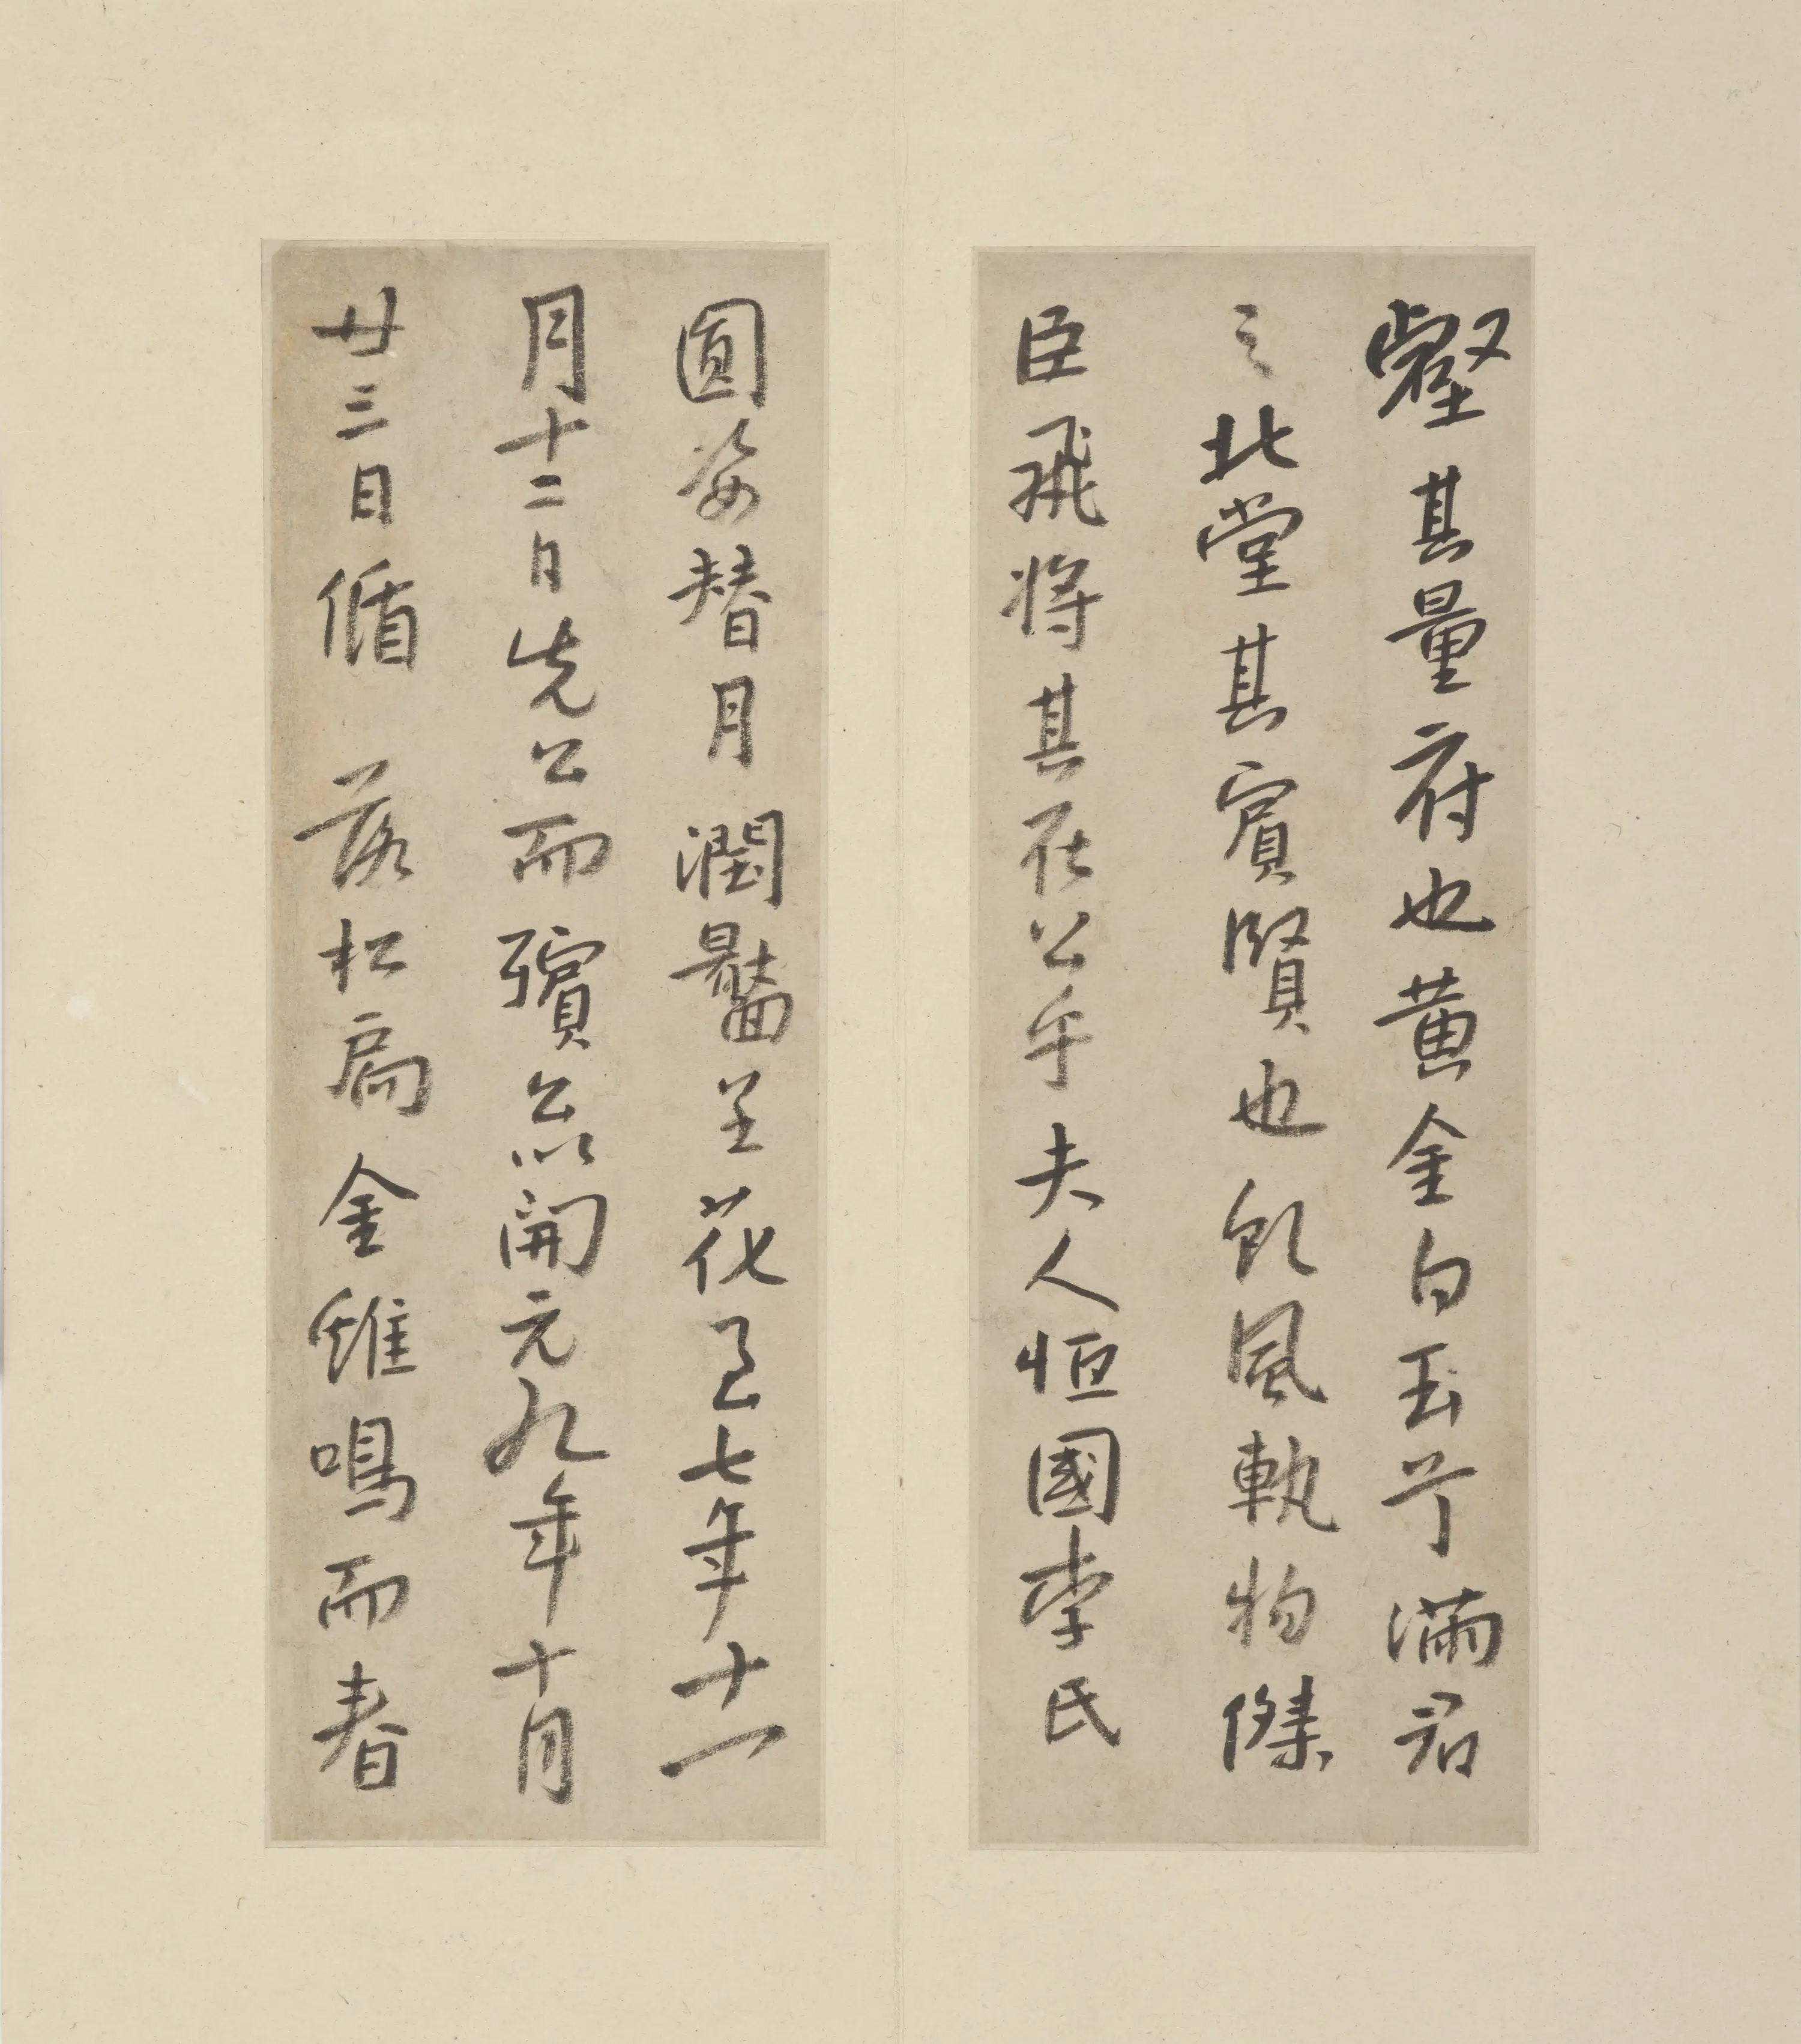 壑其量府也黃金白玉兮滿君
之北堂其賓賢也飲風軌物傑
臣飛將其在公乎夫人恒國李氏
圓姿替月潤臉呈花七年十一
月十二日先公而殯開元九年十月
廿三日循落松扃金雞鳴而春